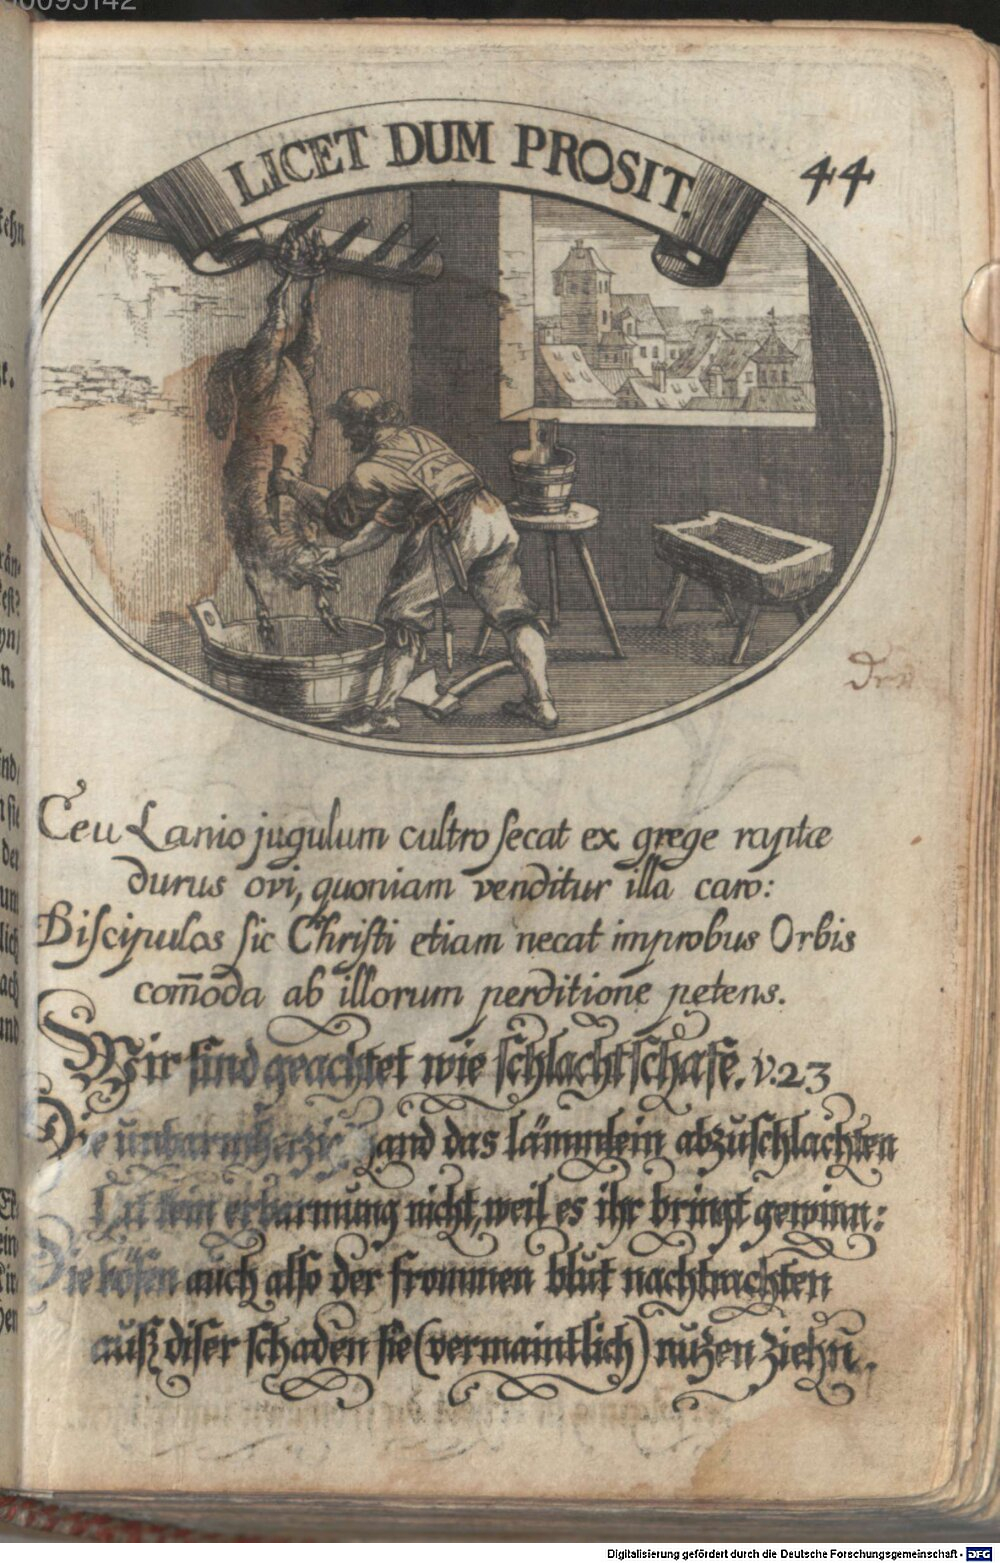 LICET DUM PROSIT.
44
Ceu Lanio jugulum cultro ſecat ex grege raptæ
durus ovi, quoniam venditur illa caro:
Diſcipulos ſic Chriſti etiam necat improbus Orbis
com̄oda ab illorum perditione petens.
Wir ſind geachtet wie ſchlachtſchafe. v.23
Die unbarmherzig hand das lämmlein abzuſchlachten
Hat kein erbarmung nicht, weil es ihr bringt gewinn:
Die böſen auch alſo der frommen blut nachtrachten
auß diſer ſchaden ſie (vermaintlich) nuzen ziehn.
Digitalisierung gefördert durch die Deutsche Forschungsgemeinschaft - DFG